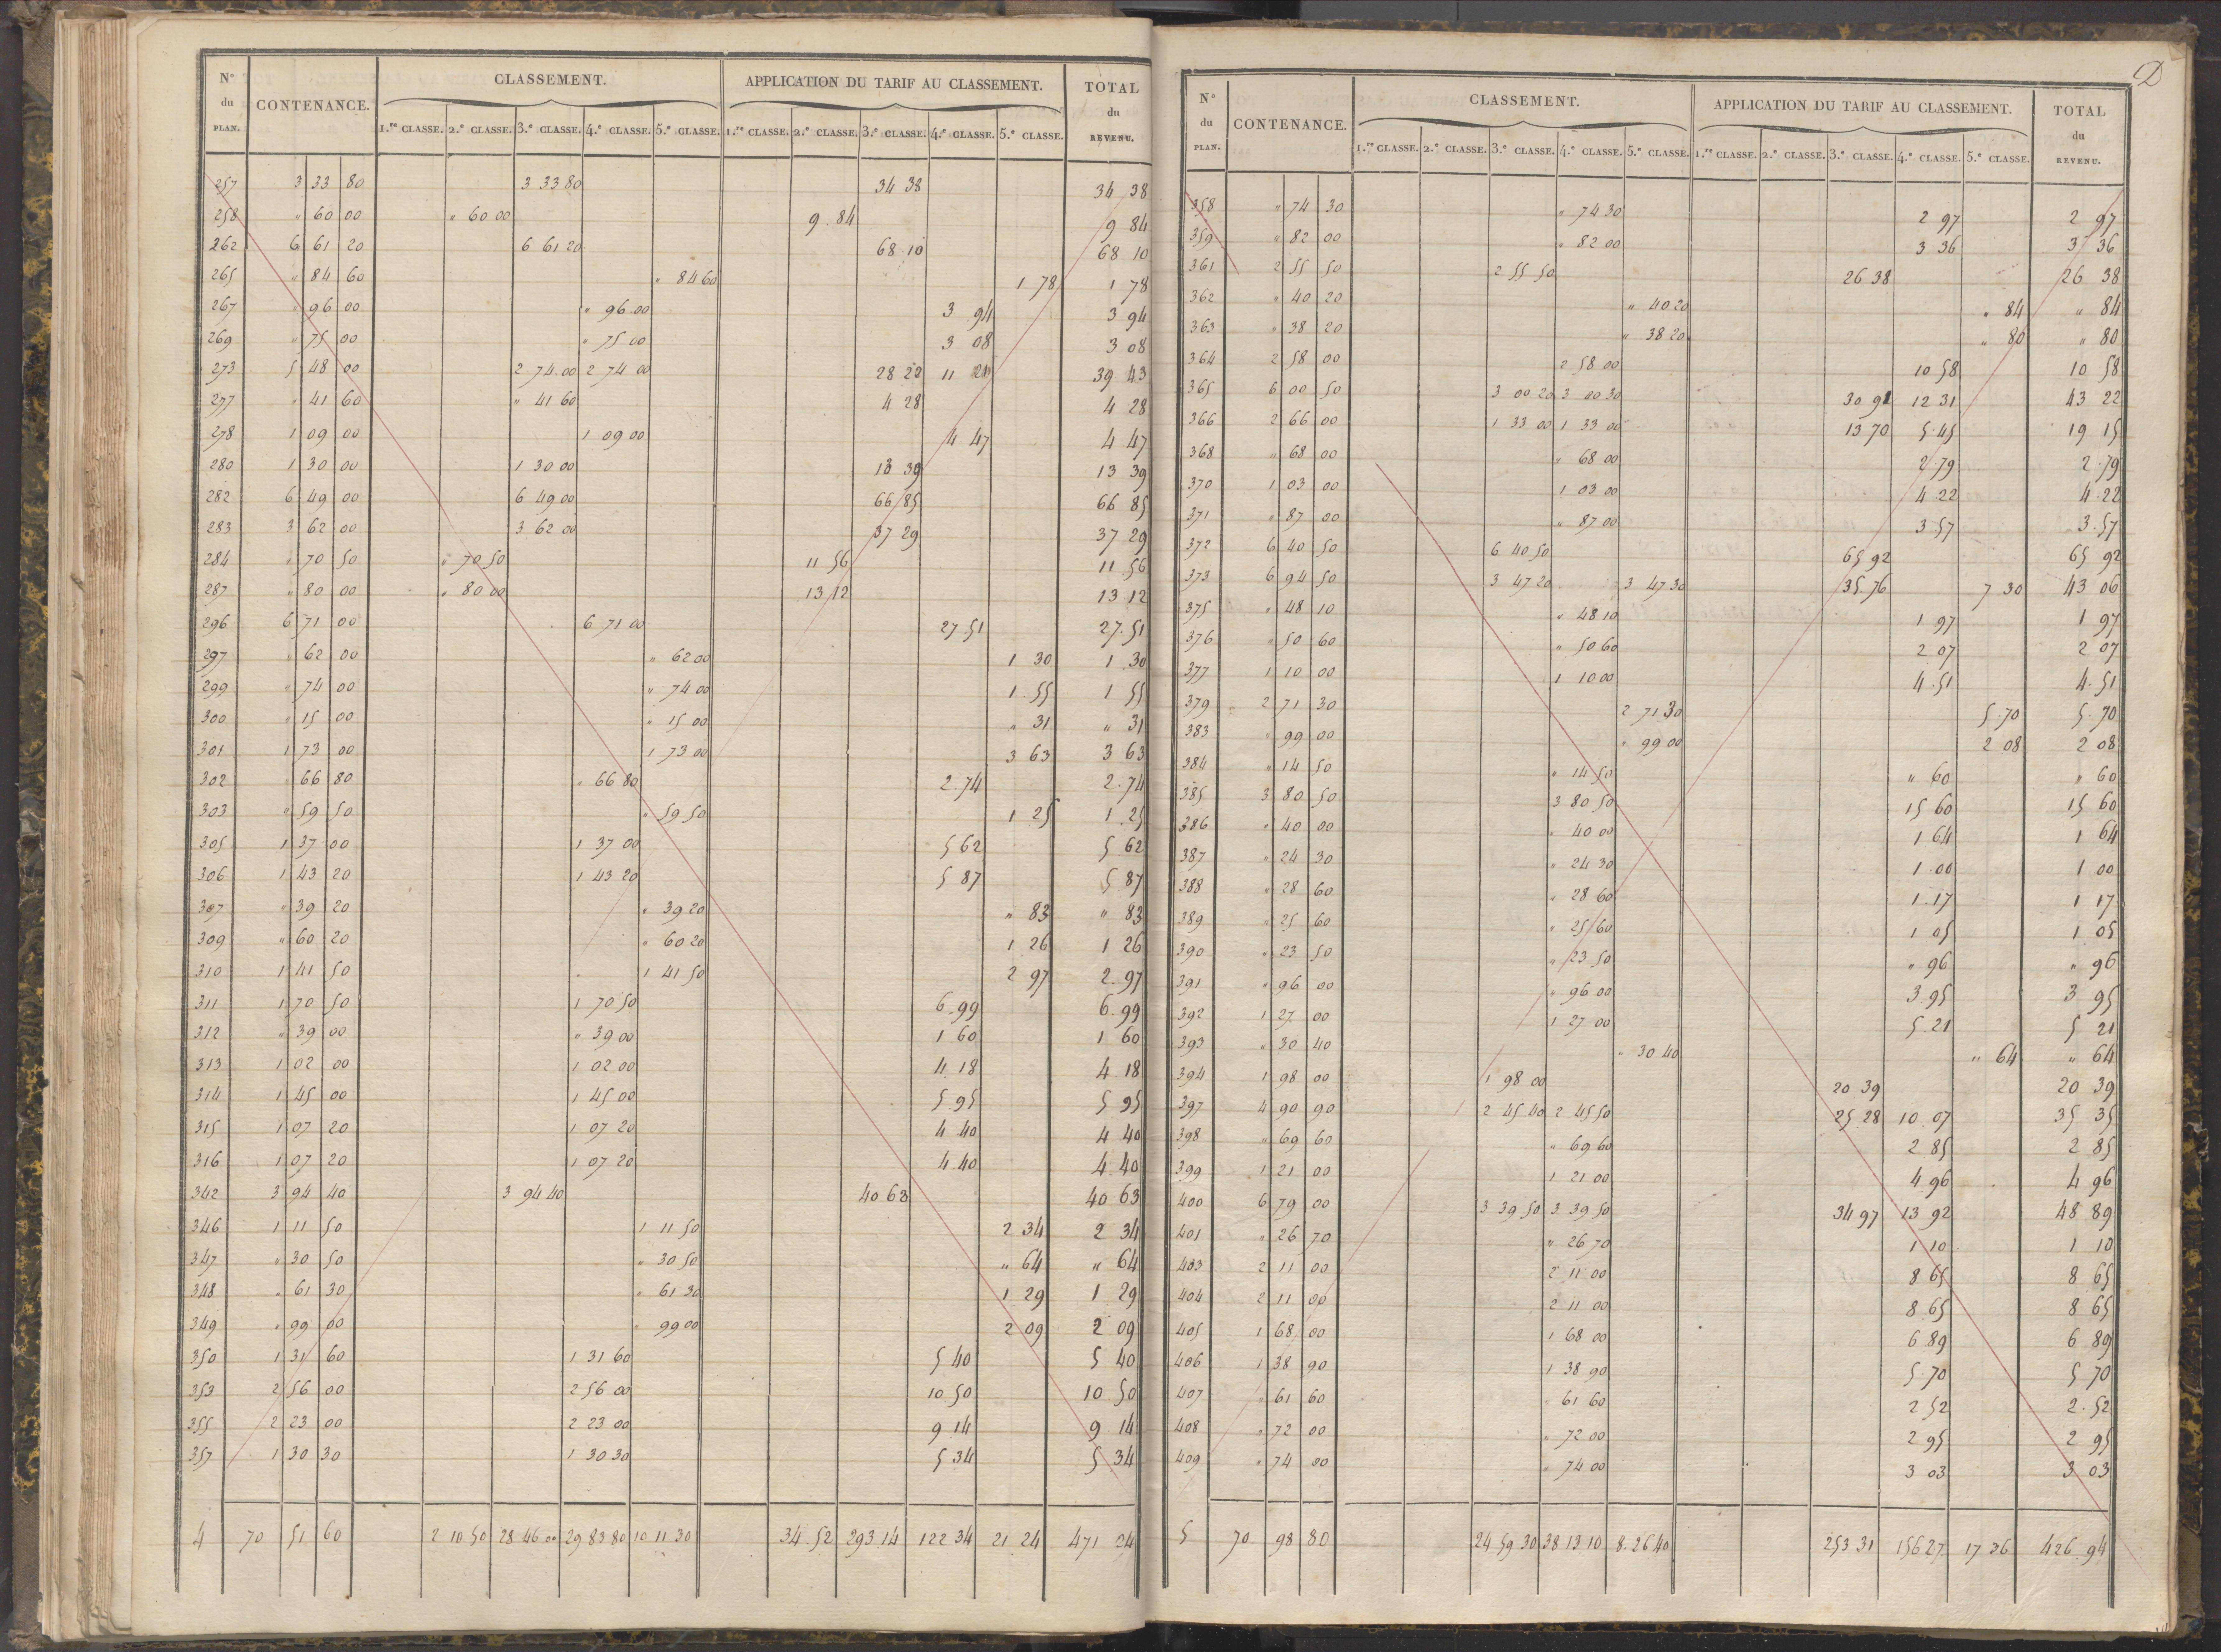 N.° du PLAN. CONTENANCE. CLASSEMENT. APPLICATION DU TARIF AU CLASSEMENT. TOTAL du REVENU.
1.re CLASSE. 2.e CLASSE. 3.e CLASSE. 4.e CLASSE. 5.e CLASSE. 1.re CLASSE. 2.e CLASSE. 3.e CLASSE. 4.e CLASSE. 5.e CLASSE.
257 3 33 80 3 33 80 34 38 34 38
258 " 60 00 " 60 00 9 84 9 84
262 6 61 20 6 61 20 68 10 68 10
265 " 84 60 " 84 60 1 78 1 78
267 " 96 00 " 96 00 3 94 3 94
269 " 75 00 " 75 00 3 08 3 08
273 5 48 00 2 74 00 2 74 00 28 22 11 21 39 43
277 " 41 60 " 41 60 4 28 4 28
278 1 09 00 1 09 00 4 47 4 47
280 1 30 00 1 30 00 13 39 13 39
282 6 49 00 6 49 00 66 85 66 85
283 3 62 00 3 62 00 37 29 37 29
284 " 70 50 " 70 50 11 56 11 56
287 " 80 00 " 80 00 13 12 13 12
296 6 71 00 6 71 00 27 51 27 51
297 " 62 00 " 62 00 1 30 1 30
299 " 74 00 " 74 00 1 55 1 55
300 " 15 00 " 15 00 " 31 " 31
301 1 73 00 1 73 00 3 63 3 63
302 " 66 80 " 66 80 2 74 2 74
303 " 59 50 " 59 50 1 25 1 25
305 1 37 00 1 37 00 5 62 5 62
306 1 43 20 1 43 20 5 87 5 87
307 " 39 20 " 39 20 " 83 " 83
309 " 60 20 " 60 20 1 26 1 26
310 1 41 50 1 41 50 2 97 2 97
311 1 70 50 1 70 50 6 99 6 99
312 " 39 00 " 39 00 1 60 1 60
313 1 02 00 1 02 00 4 18 4 18
314 1 45 00 1 45 00 5 95 5 95
315 1 07 20 1 07 20 4 40 4 40
316 1 07 20 1 07 20 4 40 4 40
342 3 94 40 3 94 40 40 63 40 63
346 1 11 50 1 11 50 2 34 2 34
347 " 30 50 " 30 50 " 64 " 64
348 " 61 30 " 61 30 1 29 1 29
349 " 99 00 " 99 00 2 09 2 09
350 1 31 60 1 31 60 5 40 5 40
353 2 56 00 2 56 00 10 50 10 50
355 2 23 00 2 23 00 9 14 9 14
357 1 30 30 1 30 30 5 34 5 34
4 70 51 60 2 10 50 28 46 00 29 83 80 10 11 30 34 52 293 14 122 34 21 24 471 24
D
N.° du PLAN. CONTENANCE. CLASSEMENT. APPLICATION DU TARIF AU CLASSEMENT. TOTAL du REVENU.
1.re CLASSE. 2.e CLASSE. 3.e CLASSE. 4.e CLASSE. 5.e CLASSE. 1.re CLASSE. 2.e CLASSE. 3.e CLASSE. 4.e CLASSE. 5.e CLASSE.
358 " 74 30 " 74 30 2 97 2 97
359 " 82 00 " 82 00 3 36 3 36
361 2 55 50 2 55 50 26 38 26 38
362 " 40 20 " 40 20 " 84 " 84
363 " 38 20 " 38 20 " 80 " 80
364 2 58 00 2 58 00 10 58 10 58
365 6 00 50 3 00 20 3 00 30 30 91 12 31 43 22
366 2 66 00 1 33 00 1 33 00 13 70 5 45 19 15
368 " 68 00 " 68 00 2 79 2 79
370 1 03 00 1 03 00 4 22 4 22
371 " 87 00 " 87 00 3 57 3 57
372 6 40 50 6 40 50 65 92 65 92
373 6 94 50 3 47 20 3 47 30 35 76 7 30 43 06
375 " 48 10 " 48 10 1 97 1 97
376 " 50 60 " 50 60 2 07 2 07
377 1 10 00 1 10 00 4 51 4 51
379 2 71 30 2 71 30 5 70 5 70
383 " 99 00 " 99 00 2 08 2 08
384 " 14 50 " 14 50 " 60 " 60
385 3 80 50 3 80 50 15 60 15 60
386 " 40 00 " 40 00 1 64 1 64
387 " 24 30 " 24 30 1 00 1 00
388 " 28 60 " 28 60 1 17 1 17
389 " 25 60 " 25 60 1 05 1 05
390 " 23 50 " 23 50 " 96 " 96
391 " 96 00 " 96 00 3 95 3 95
392 1 27 00 1 27 00 5 21 5 21
393 " 30 40 " 30 40 " 64 " 64
394 1 98 00 1 98 00 20 39 20 39
397 4 90 90 2 45 40 2 45 50 25 28 10 07 35 35
398 " 69 60 " 69 60 2 85 2 85
399 1 21 00 1 21 00 4 96 4 96
400 6 79 00 3 39 50 3 39 50 34 97 13 92 48 89
401 " 26 70 " 26 70 1 10 1 10
403 2 11 00 2 11 00 8 65 8 65
404 2 11 00 2 11 00 8 65 8 65
405 1 68 00 1 68 00 6 89 6 89
406 1 38 90 1 38 90 5 70 5 70
407 " 61 60 " 61 60 2 52 2 52
408 " 72 00 " 72 00 2 95 2 95
409 " 74 00 " 74 00 3 03 3 03
5 70 98 80 24 59 30 38 13 10 8 26 40 253 31 156 27 17 36 426 94